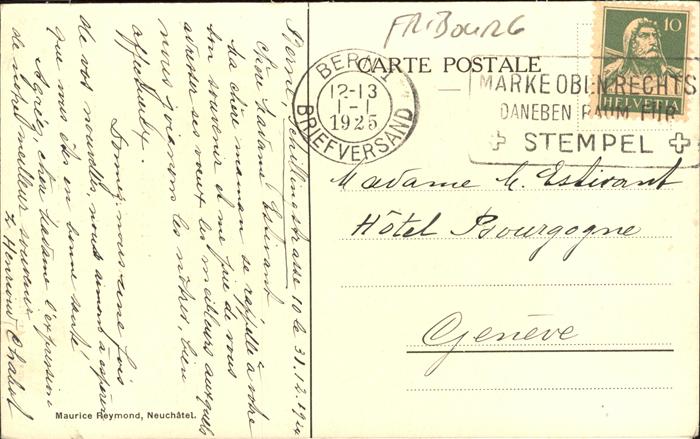 FRIBOURG
CARTE POSTALE
10
HELVETIA
BERN 1
12-13
1-1
1925
BRIEFVERSAND
MARKE OBEN RECHTS
DANEBEN RAUM FÜR
STEMPEL
Madame E. Estivant
Hôtel Bourgogne
Genève
Berne Schillingstrasse 10 le 31.12.1924
Chère Madame Estivant
Ma chère maman se rappelle à votre
bon souvenir et me prie de vous
adresser ses vœux les meilleurs auxquels
nous joignons les nôtres, bien
affectueux.
Donnez-nous une fois
de vos nouvelles, nous aimons à espérer
que vous êtes en bonne santé,
Agréez, chère Madame l'expression
de nos meilleurs souvenirs
Henrioud Chabot
Maurice Reymond, Neuchâtel.